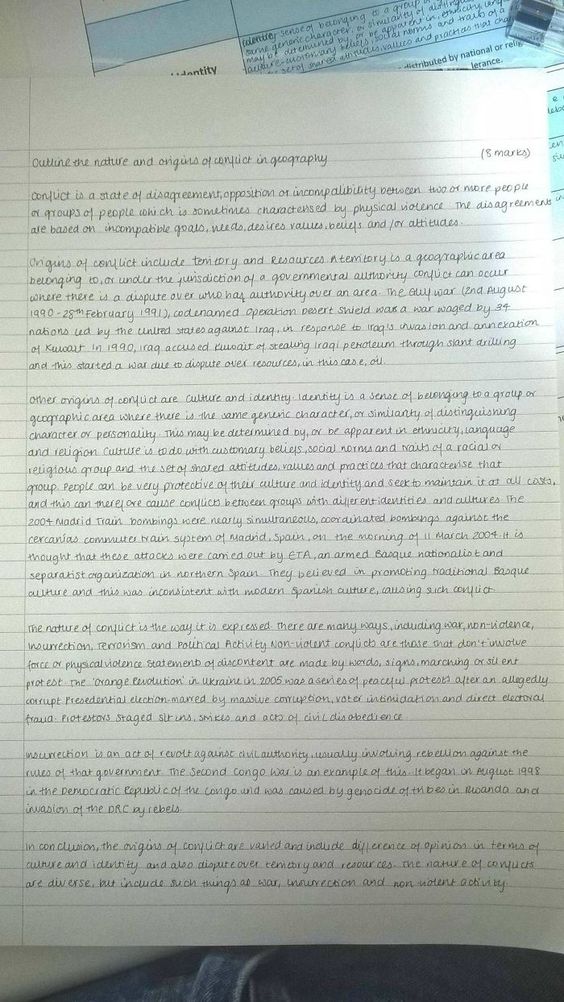 identity sense of belonging to a group
same generic character, or similarity of distinguish
may be determined by, or be apparent in, ethnicity, lang
culture-custom any beliefs, social norms and traits of a
set of shared attitudes, values and practices that cha
Identity
distributed by national or relig
lerance.
Outline the nature and origins of conflict in geography (8 marks)
Conflict is a state of disagreement, opposition or incompatibility between two or more people
or groups of people which is sometimes characterised by physical violence. The disagreements
are based on incompatible goals, needs, desires values, beliefs and/or attitudes.
Origins of conflict include territory and Resources. A territory is a geographic area
belonging to, or under the jurisdiction of a governmental authority conflict can occur
where there is a dispute over who has authority over an area. The Gulf war (2nd August
1990 - 28th February 1991), codenamed Operation Desert Shield was a war waged by 34
nations led by the United States against Iraq, in response to Iraq's invasion and annexation
of Kuwait. In 1990, Iraq accused Kuwait of stealing Iraqi petroleum through slant drilling
and this started a war due to dispute over resources, in this case, oil.
Other origins of conflict are culture and identity. Identity is a sense of belonging to a group or
geographic area where there is the same generic character, or similarity of distinguishing
character or personality. This may be determined by, or be apparent in ethnicity, language
and religion. Culture is to do with customary beliefs, social norms and traits of a racial or
religious group and the set of shared attitudes, values and practices that characterise that
group. People can be very protective of their culture and identity and seek to maintain it at all costs,
and this can therefore cause conflicts between groups with different identities and cultures. The
2004 Madrid Train bombings were nearly simultaneous, coordinated bombings against the
cercanías commuter train system of Madrid, Spain, on the morning of 11 March 2004. It is
thought that these attacks were carried out by ETA, an armed Basque nationalist and
separatist organization in northern Spain. They believed in promoting traditional Basque
culture and this was inconsistent with modern Spanish culture, causing such conflict.
The nature of conflict is the way it is expressed. There are many ways, including war, non-violence,
Insurrection, Terrorism, and Political Activity. Non-violent conflicts are those that don't involve
force or physical violence. Statement of discontent are made by words, signs, marching or silent
protest. The 'Orange Revolution' in Ukraine in 2005 was a series of peaceful protests after an allegedly
corrupt Presedential election marred by massive corruption, voter intimidation and direct electoral
fraud. Protestors staged sit ins, strikes and acts of civil disobedience.
Insurrection is an act of revolt against civil authority, usually involving rebellion against the
rules of that government. The Second Congo War is an example of this. It began on August 1998
in the Democratic Republic of the Congo and was caused by genocide of tribes in Rwanda and
invasion of the DRC by rebels.
In conclusion, the origins of conflict are varied and include difference of opinion in terms of
culture and identity and also dispute over territory and resources. The nature of conflicts
are diverse, but include such things as war, insurrection and non violent activity.